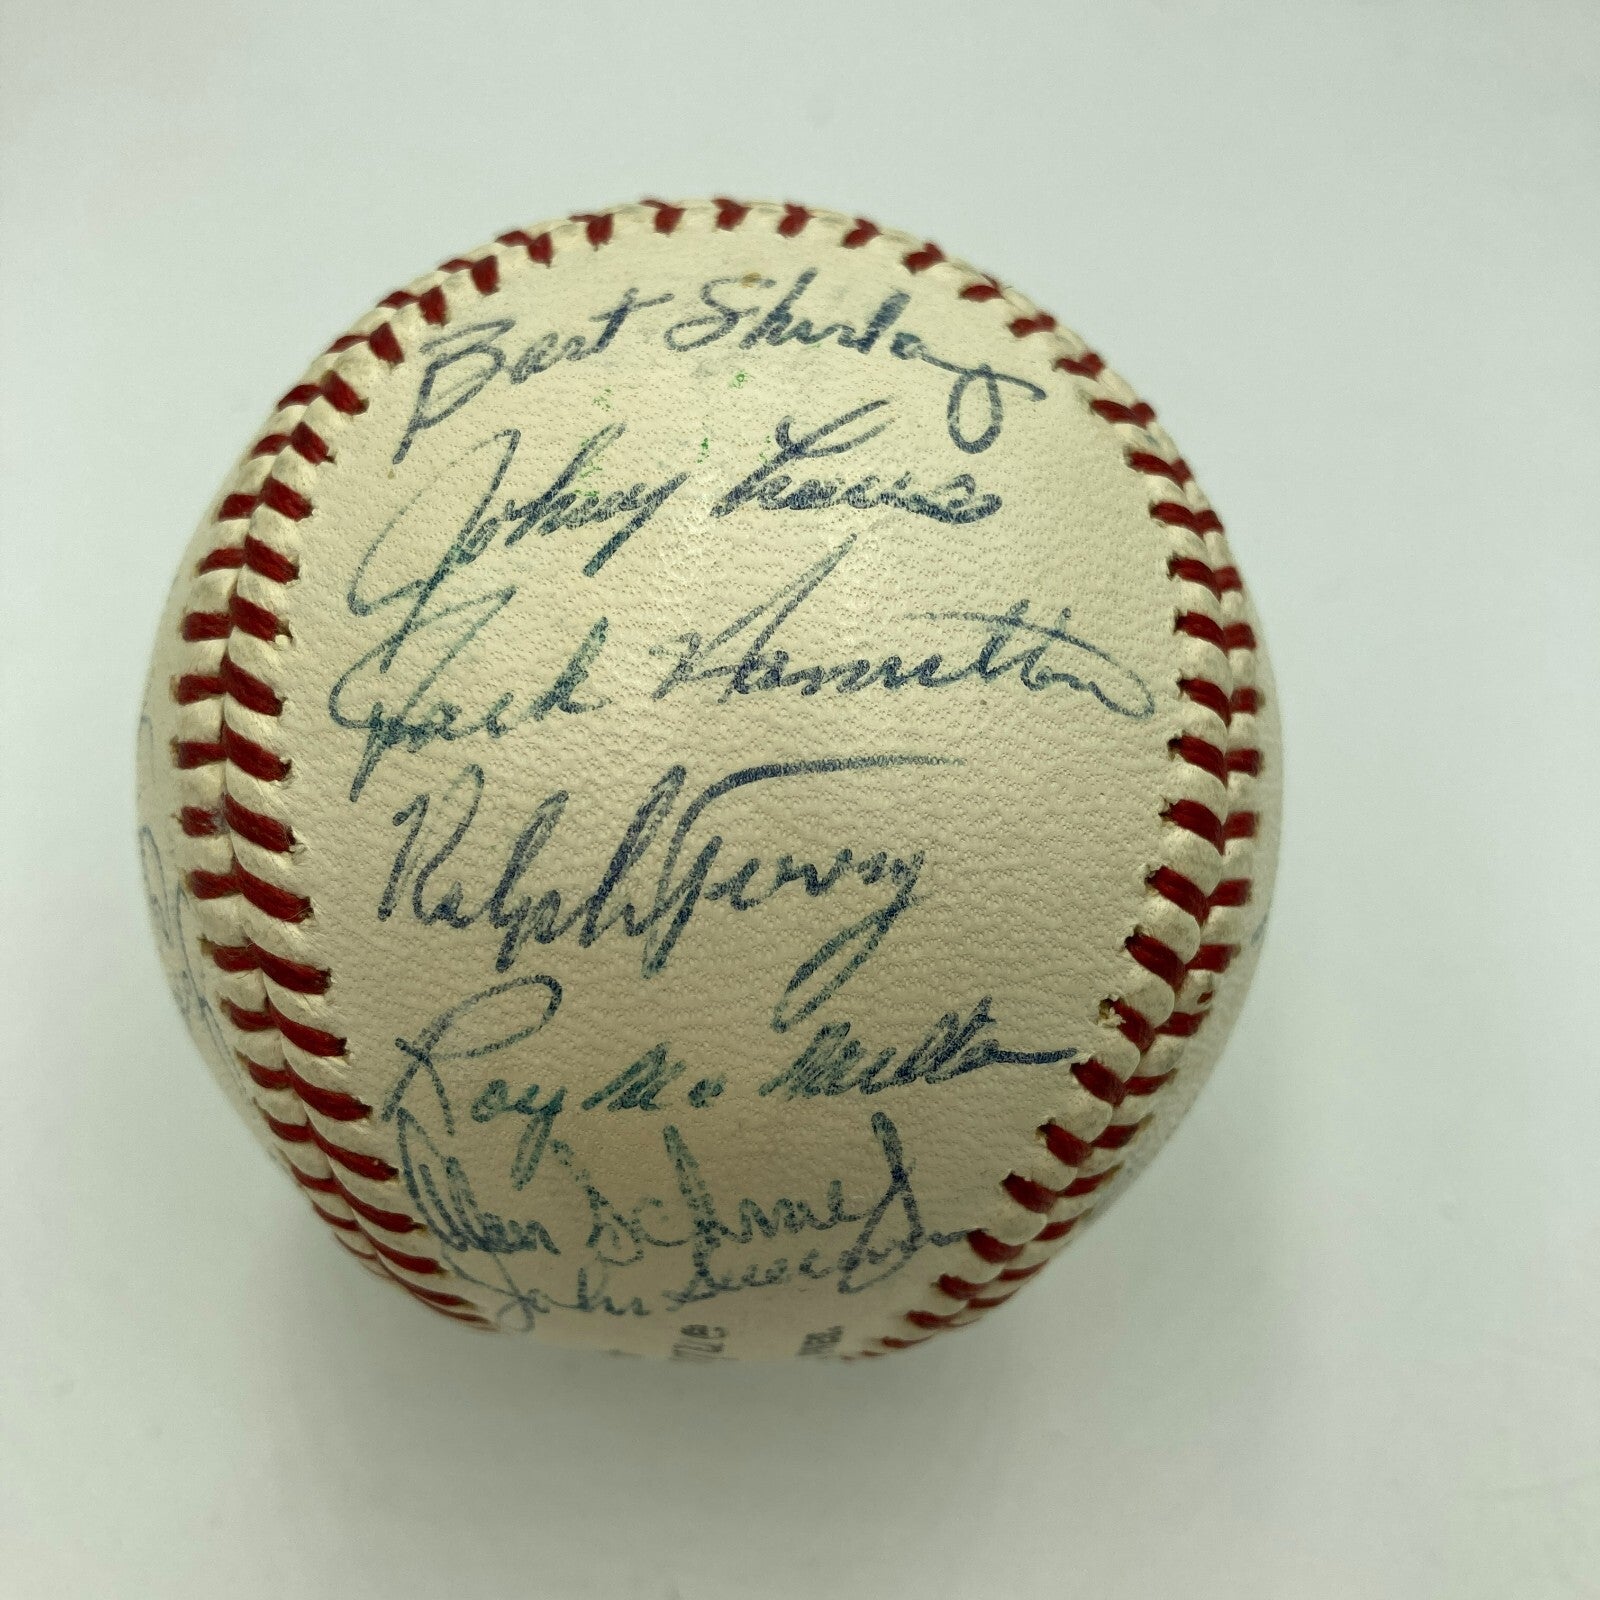 Bart Shirley
Johnny Lewis
Jack Hamilton
Ralph Terry
Roy McMillan
Al Schmelz
John Sullivan